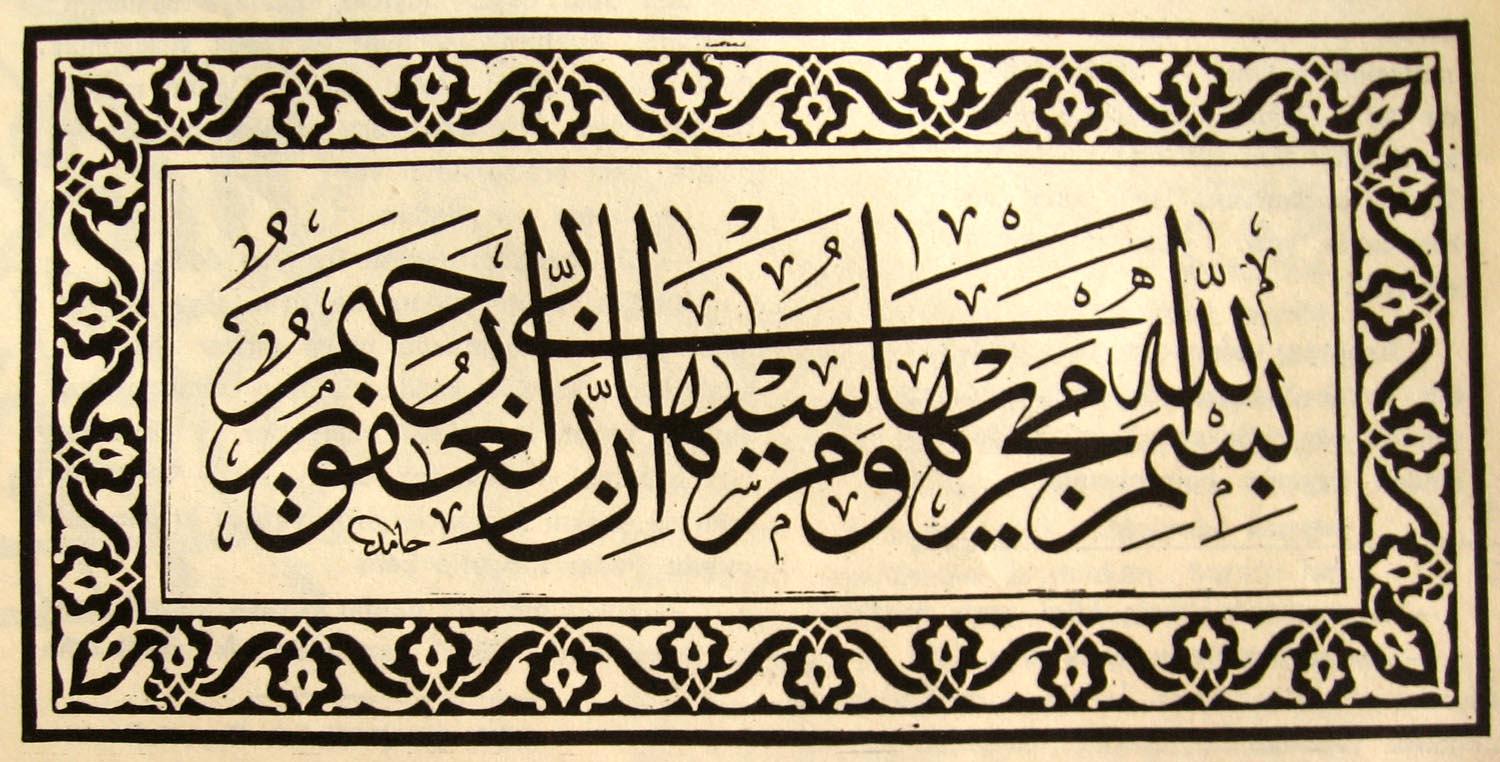 بِسْمِ اللّٰهِ مَجْرٰۭىهَا وَمُرْسٰىهَا اِنَّ رَبّٖى لَغَفُورٌ رَحٖيمٌ
حامد